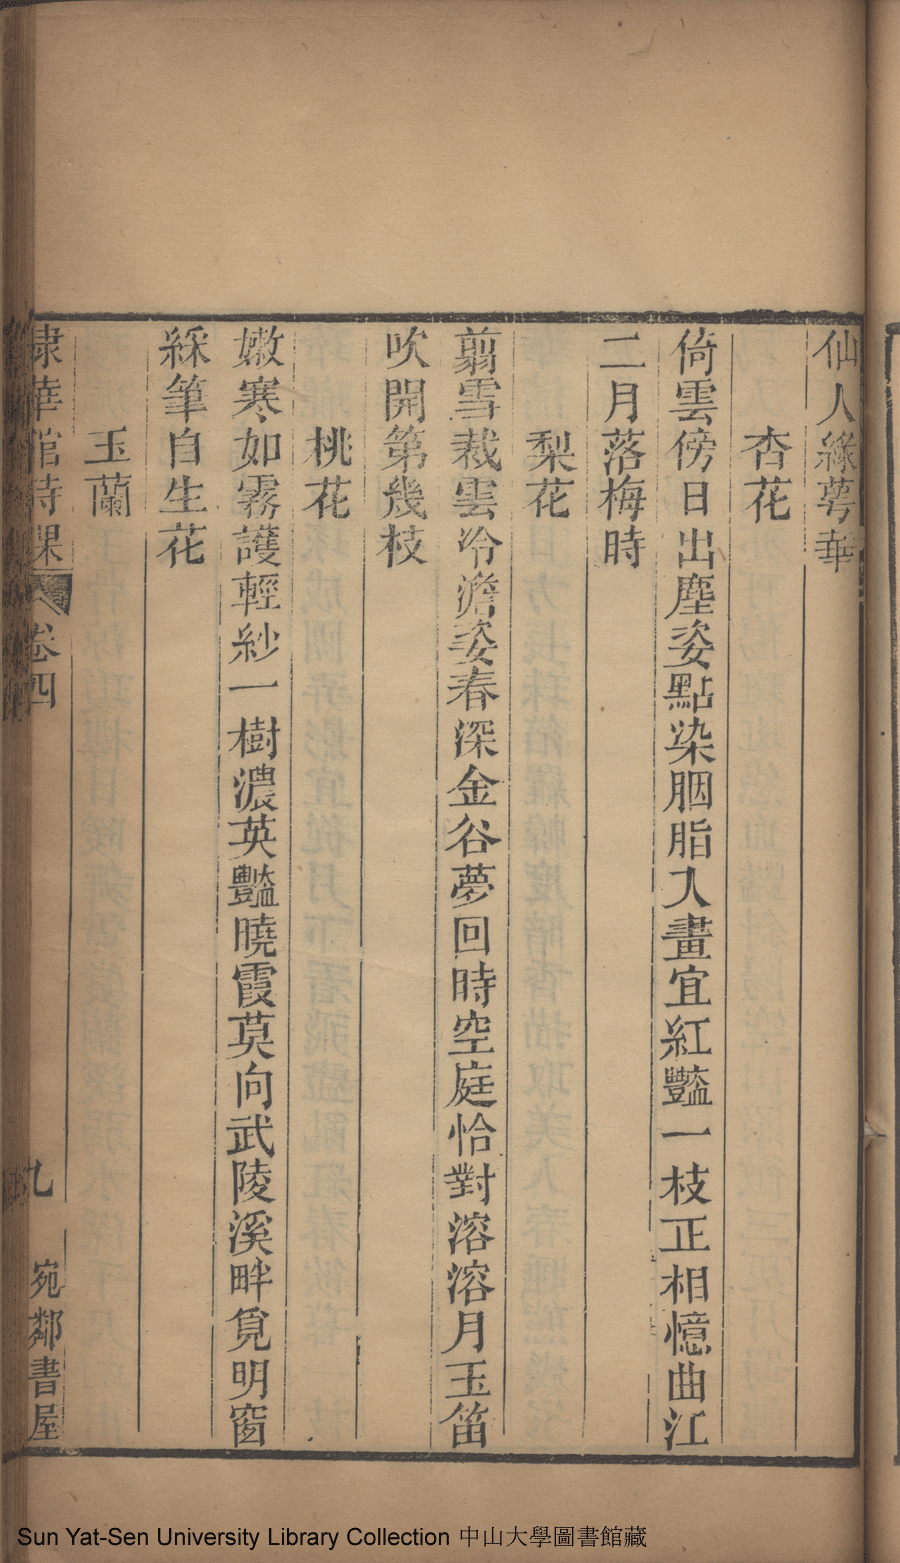 仙人綠萼華
杏花
倚雲傍日出塵姿點染胭脂入畫宜紅豔一枝正相憶曲江
二月落梅時
梨花
翦雪裁雲冷澹姿春深金谷夢回時空庭恰對溶溶月玉笛
吹開第幾枝
桃花
嫩寒如霧護輕紗一樹濃英豔曉霞莫向武陵溪畔覓明窗
綵筆自生花
玉蘭
棣華館詩課 卷四 九 宛鄰書屋
Sun Yat-Sen University Library Collection 中山大學圖書館藏